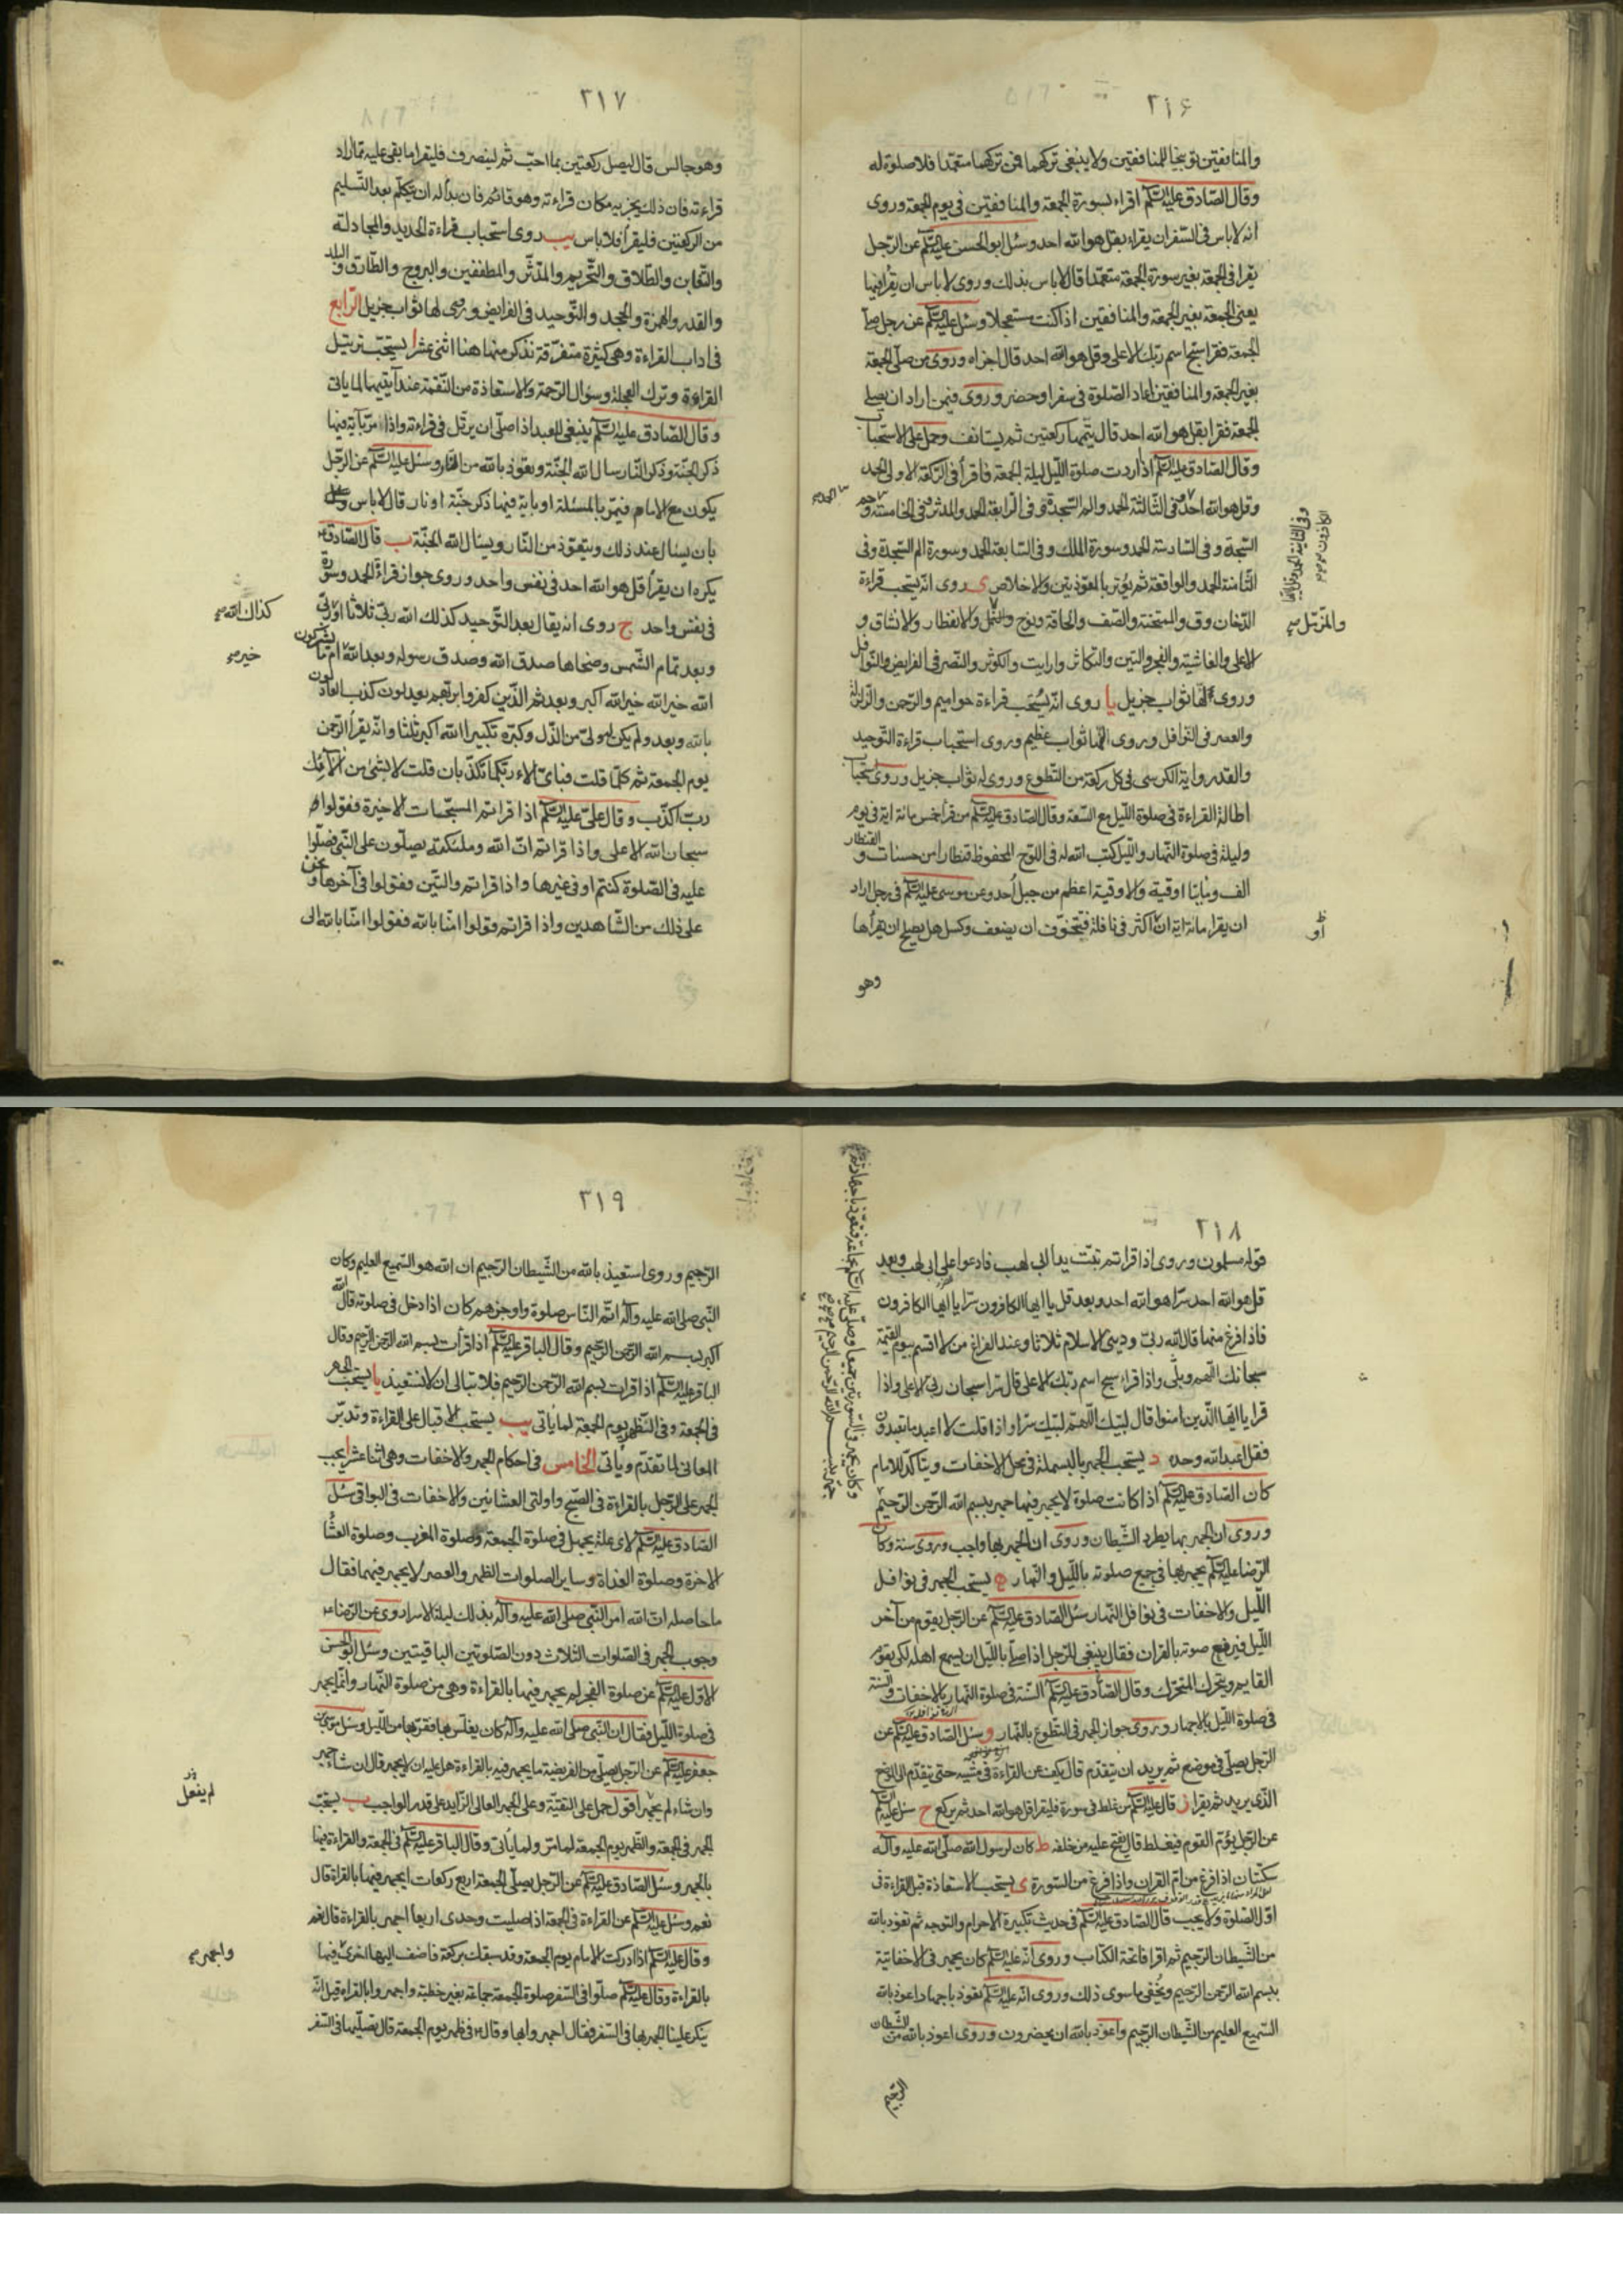 ٢١۶
والمنافقين توبيخا للمنافقين ولا ينبغى تركهما فمن تركهما متعمّدا فلا صلوة له
وقال الصّادق عليه السّلم اقراء بسورة الجمعة والمنافقين فى يوم الجمعة وروى
انه لا باس فى السّفر ان يقراء بقل هو الله احد وسئل ابو الحسن عليه السّلم عن الرّجل
يقرا فى الجمعة بغير سورة الجمعة متعمّدا قال لا باس بذلك وروى لا باس ان يقرا فيها
يعنى الجمعة بغير الجمعة والمنافقين اذا كنت مستعجلا وسئل عليه السّلم عن رجل صلّى
الجمعة فقرا سبّح اسم ربّك الاعلى وقل هو الله احد قال اجزاه وروى من صلّى الجمعة
بغير الجمعة والمنافقين اعاد الصّلوة فى سفر او حضر وروى فيمن اراد ان يصلّى
الجمعة فقرا بقل هو الله احد قال يتمّها ركعتين ثم يستانف وحمل على الاستحباب
وقال الصّادق عليه السّلم اذا اردت صلوة اللّيل ليلة الجمعة فاقرأ فى الرّكعة الاولى الحمد
وقل هو الله احد وفى الثّالثة الحمد والم السّجدة وفى الرّابعة الحمد والمدثر وفى الخامسة وحم
السّجدة وفى السّادسة الحمد وسورة الملك وفى السّابعة الحمد وسورة الم السّجدة وفى
الثّامنة الحمد والواقعة ثم يوتر بالمعوّذتين والاخلاص ى روى انّه يستحب قراءة
الدّخان وق والممتحنة والصّف والحاقة ونوح والانفطار والانشقاق و
الاعلى والغاشية والفجر والتين والتكاثر وارايت والكوثر والنّصر فى الفرايض والنّوافل
وروى لها ثواب جزيل يا روى انّه يُستحب قراءة حواميم والرّحمن والزّلزلة
والعصر فى النّوافل وروى لها ثواب عظيم وروى استحباب قراءة التّوحيد
والقدر واية الكرسى فى كلّ ركعة من التّطوع وروى له ثواب جزيل وروى استحباب
اطالة القراءة فى صلوة اللّيل مع السّعة وقال الصّادق عليه السّلم من قرا خمس مائة اية فى يوم
وليلة فى صلوة النّهار واللّيل كتب الله له فى اللّوح المحفوظ قنطارا من حسنات والقنطار
الف ومايتا اوقية والاوقية اعظم من جبل أُحد وعن موسى عليه السّلم فى رجل اراد
ان يقرا مائة اية او اكثر فى نافلة فيتخوّف ان يضعف وكسل هل يصلح ان يقرأها
وهو
وفى الثانية الحمد وقل يا ايها
الكافرون
والمزّمّل
او
٢١٧
وهو جالس قال ليصل ركعتين بما احبّ ثم لينصرف فليقرا ما بقى عليه ممّا اراد
قراءته فان ذلك يجزيه مكان قراءته وهو قائم فان بدأ له ان يتكلّم بعد التّسليم
من الرّكعتين فليقرأ فلا باس يب روى استحباب قراءة الحديد والمجادلة
والتّغابن والطّلاق والتّحريم والمدّثّر والمطففين والبروج والطّارق والبلد
والقدر والهمزة والجحد والتّوحيد فى الفرايض وروى لها ثواب جزيل الرّابع
فى اداب القراءة وهى كثيرة متفرّقة نذكر منها هنا اثنى عشر ا يستحبّ ترتيل
القراءة وترك العجلة وسؤال الرّحمة والاستعاذة من النّقمة عند آيتيهما لما ياتى
وقال الصّادق عليه السّلم ينبغى للعبد اذا صلّى ان يرتّل فى قراءته واذا مرّ بآية فيها
ذكر الجنّة وذكر النّار سال الله الجنّة وتعوّذ بالله من النّار وسئل عليه السّلم عن الرّجل
يكون مع الامام فيمرّ بالمسئلة او باية فيها ذكر جنّة او نار قال لا باس
بان يسئال عند ذلك ويتعوّذ من النّار ويسئال الله الجنّة ب قال الصّادق
يكره ان يقرأ قل هو الله احد فى نفس واحد وروى جواز قراءة الحمد وسورة
فى نفس واحد ج روى انه يقال بعد التّوحيد كذلك الله ربّى ثلاثا
وبعد تمام الشّمس وضحاها صدق الله وصدق رسوله وبعد الله ام ما يشركون
الله خير الله خير الله اكبر وبعد ثم الّذين كفروا بربّهم يعدلون كذب العادلون
بالله وبعد ولم يكن له ولىّ من الذّل وكبّره تكبيرا الله اكبر ثلثا وانّه يقرأ الرّحمن
يوم الجمعة ثم كلّما قلت فباىّ الاء ربّكما تكذّبان قلت لا بشئ من آلائك
ربّ اكذّب وقال علىّ عليه السّلم اذا قراتم المسبّحات الاخيرة فقولوا
سبحان الله الاعلى واذا قراتم انّ الله وملئكته يصلّون على النّبى فصلّوا
عليه فى الصّلوة كنتم او فى غيرها واذا قراتم والتّين فقولوا فى آخرها ونحن
على ذلك من الشّاهدين واذا قراتم قولوا امنّا بالله فقولوا امنّا بالله الى
كذلك الله
خير
٢١٨
قوله مسلمون وروى اذا قراتم تبّت يدا ابى لهب فادعوا على ابى لهب وبعد
قل هو الله احد سرّا هو الله احد وبعد قل يا ايها الكافرون سرّا يا ايها الكافرون
فاذا فرغ منها قال الله ربّى ودينى الاسلام ثلاثا وعند الفراغ من لا اقسم بيوم القيمة
سبحانك اللّهم وبلى واذا قراء سبح اسم ربّك الاعلى قال سرّا سبحان ربّى الاعلى واذا
قرا يا ايّها الّذين امنوا قال لبّيك اللّهمّ لبّيك سرّا واذا قلت لا اعبد ما تعبدون
فقل اعبد الله وحده د يستحب الجهر بالبسملة فى محل الاخفات ويتاكّد للامام
كان الصّادق عليه السّلم اذا كانت صلوة لا يجهر فيها جهر ببسم الله الرّحمن الرّحيم
وروى ان الجهر بها يطرد الشّيطان وروى ان الجهر بها واجب وروى سنة وكان
الرّضا عليه السّلم يجهر بها فى جميع صلوته باللّيل والنّهار ه يستحب الجهر فى نوافل
اللّيل والاخفات فى نوافل النّهار سئل الصّادق عليه السّلم عن الرّجل يقوم من آخر
اللّيل فيرفع صوته بالقران فقال ينبغى للرّجل اذا صلّى باللّيل ان يسمع اهله لكى يقوم
القايم ويتحرك المتحرّك وقال الصّادق عليه السّلم السّنة فى صلوة النّهار بالاخفات والسنة
فى صلوة اللّيل بالاجهار وروى جواز الجهر فى التّطوع بالنّهار و سئل الصّادق عليه السّلم عن
الرّجل يصلّى فى موضع ثم يريد ان يتقدّم قال يكف عن القراءة فى مشيه حتى يتقدّم الى الموضع
الّذى يريد ثم يقرا ز قال عليه السّلم من غلط فى سورة فليقرا قل هو الله احد ثم يركع ح سئل عليه السّلم
عن الرّجل يؤمّ القوم فيغلط قال يفتح عليه من خلفه ط كان لرسول الله صلّى الله عليه وآله
سكتتان اذا فرغ من امّ القران واذا فرغ من السّورة ى يستحب الاستعاذة قبل القراءة فى
اوّل الصّلوة ولا يجب قال الصّادق عليه السّلم فى حديث تكبيرة الاحرام والتوجه ثم تعوّذ بالله
من الشّيطان الرّجيم ثم اقرا فاتحة الكتاب وروى انّه عليه السّلم كان يجهر فى الاخفاتية
ببسم الله الرّحمن الرّحيم ويُخفى ما سوى ذلك وروى انّه عليه السّلم تعوّذ باجهار اعوذ بالله
السّميع العليم من الشّيطان الرّجيم واعوذ بالله ان يحضرون وروى اعوذ بالله من الشّيطان
الرّجيم
٢١٩
الرّجيم وروى استعيذ بالله من الشّيطان الرّجيم ان الله هو السّميع العليم وكان
النّبى صلى الله عليه وآله اتمّ النّاس صلوة واوجزهم كان اذا دخل فى صلوته قال الله
اكبر بسم الله الرّحمن الرّحيم وقال الباقر عليه السّلم اذا قرأت بسم الله الرّحمن الرّحيم وقال
الباقر عليه السّلم اذا قرات بسم الله الرّحمن الرّحيم فلا تبالى ان لا تستعيذ يا يستحب الجهر
فى الجمعة وفى الظّهر يوم الجمعة لما يأتى يب يستحب الاقبال على القراءة وتدبّر
المعانى لما تقدّم ويأتى الخامس فى احكام الجهر والاخفات وهى اثنا عشر ا يجب
الجهر على الرّجل بالقراءة فى الصّبح واولتى العشائين والاخفات فى البواقى سئل
الصّادق عليه السّلم لاى علّة يجهر فى صلوة الجمعة وصلوة المغرب وصلوة العشا
الاخرة وصلوة الغداة وساير الصلوات الظهر والعصر لا يجهر فيهما فقال
ما حاصله انّ الله امر النّبى صلى الله عليه وآله بذلك ليلة الاسراء وروى عن الرّضا
وجوب الجهر فى الصّلوات الثّلاث دون الصّلوتين الباقيتين وسئل ابو الحسن
الاوّل عليه السّلم عن صلوة الفجر لم يجهر فيها بالقراءة وهى من صلوة النّهار وانّما يجهر
فى صلوة اللّيل فقال ان النّبى صلى الله عليه وآله كان يغلّس بها فقرّبها من اللّيل وسئل موسى بن
جعفر عليه السّلم عن الرّجل يصلّى من الفريضة ما يجهر فيه بالقراءة هل عليه ان لا يجهر قال ان شاء جهر
وان شاء لم يجهر أقول حمل على التقيّة وعلى الجهر العالى الزّايد على قدر الواجب ب يستحبّ
الجهر فى الجمعة والظّهر يوم الجمعة لما مرّ ولما يأتى وقال الباقر عليه السّلم فى الجمعة والقراءة فيها
بالجهر وسئل الصّادق عليه السّلم عن الرّجل يصلّى الجمعة اربع ركعات ايجهر فيها بالقراة قال
نعم وسئل عليه السّلم عن القراءة فى الجمعة اذا صليت وحدى اربعا اجهر بالقراءة قال نعم
وقال عليه السّلم اذا ادركت الامام يوم الجمعة وقد سبقك بركعة فاضف اليها اخرى فيها
بالقراءة وقال عليه السّلم صلّوا فى السّفر صلوة الجمعة جماعة بغير خطبة واجهروا بالقراءة قيل انّه
ينكر علينا الجهر بها فى السّفر فقال اجهروا بها وقال فى ظهر يوم الجمعة قال تصلّيها فى السّفر
لم يفعل
واجهر